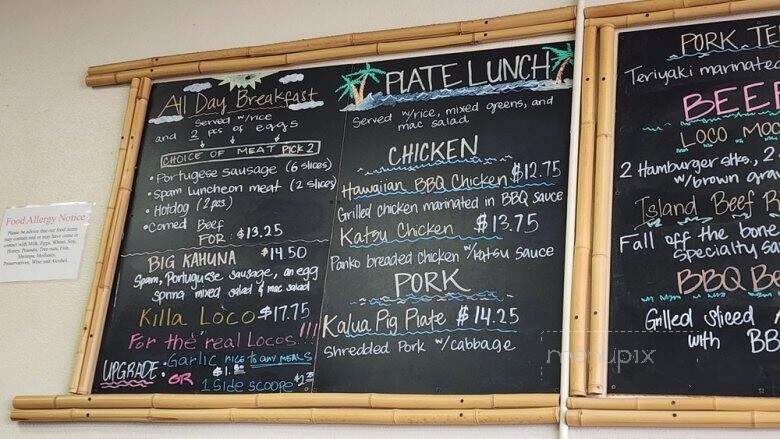 Food Allergy Notice
Please be advise that our food items
may contain and or may have come in
contact with Milk, Eggs, Wheat, Soy,
Honey, Peanuts, Tree nuts, Fish,
Shrimps, Mollusks,
Preservatives, Wine and Alcohol.
All Day Breakfast
Served w/rice
and 2 pcs of eggs
CHOICE OF MEAT PICK 2
• Portugese sausage (6 slices)
• Spam Luncheon meat (2 slices)
• Hotdog (2pcs)
• Corned Beef
FOR $13.25
BIG KAHUNA $14.50
Spam, Portuguese sausage, an egg
spring mixed salad & mac salad
Killa Loco $17.75
For the real Locos!!!
UPGRADE: Garlic rice to any meals
OR
1 side scoope
PLATE LUNCH
Served w/rice, mixed greens, and
mac salad
CHICKEN
Hawaiian BBQ Chicken $12.75
Grilled chicken marinated in BBQ sauce
Katsu Chicken $13.75
Panko breaded chicken w/katsu sauce
PORK
Kalua Pig Plate $14.25
Shredded Pork w/cabbage
PORK TE
Teriyaki marinated
BEEF
LOCO MOC
2 Hamburger stks, 2
w/brown grav
Island Beef B
Fall off the bone
specialty sa
BBQ B
Grilled sliced
with BB
menupix